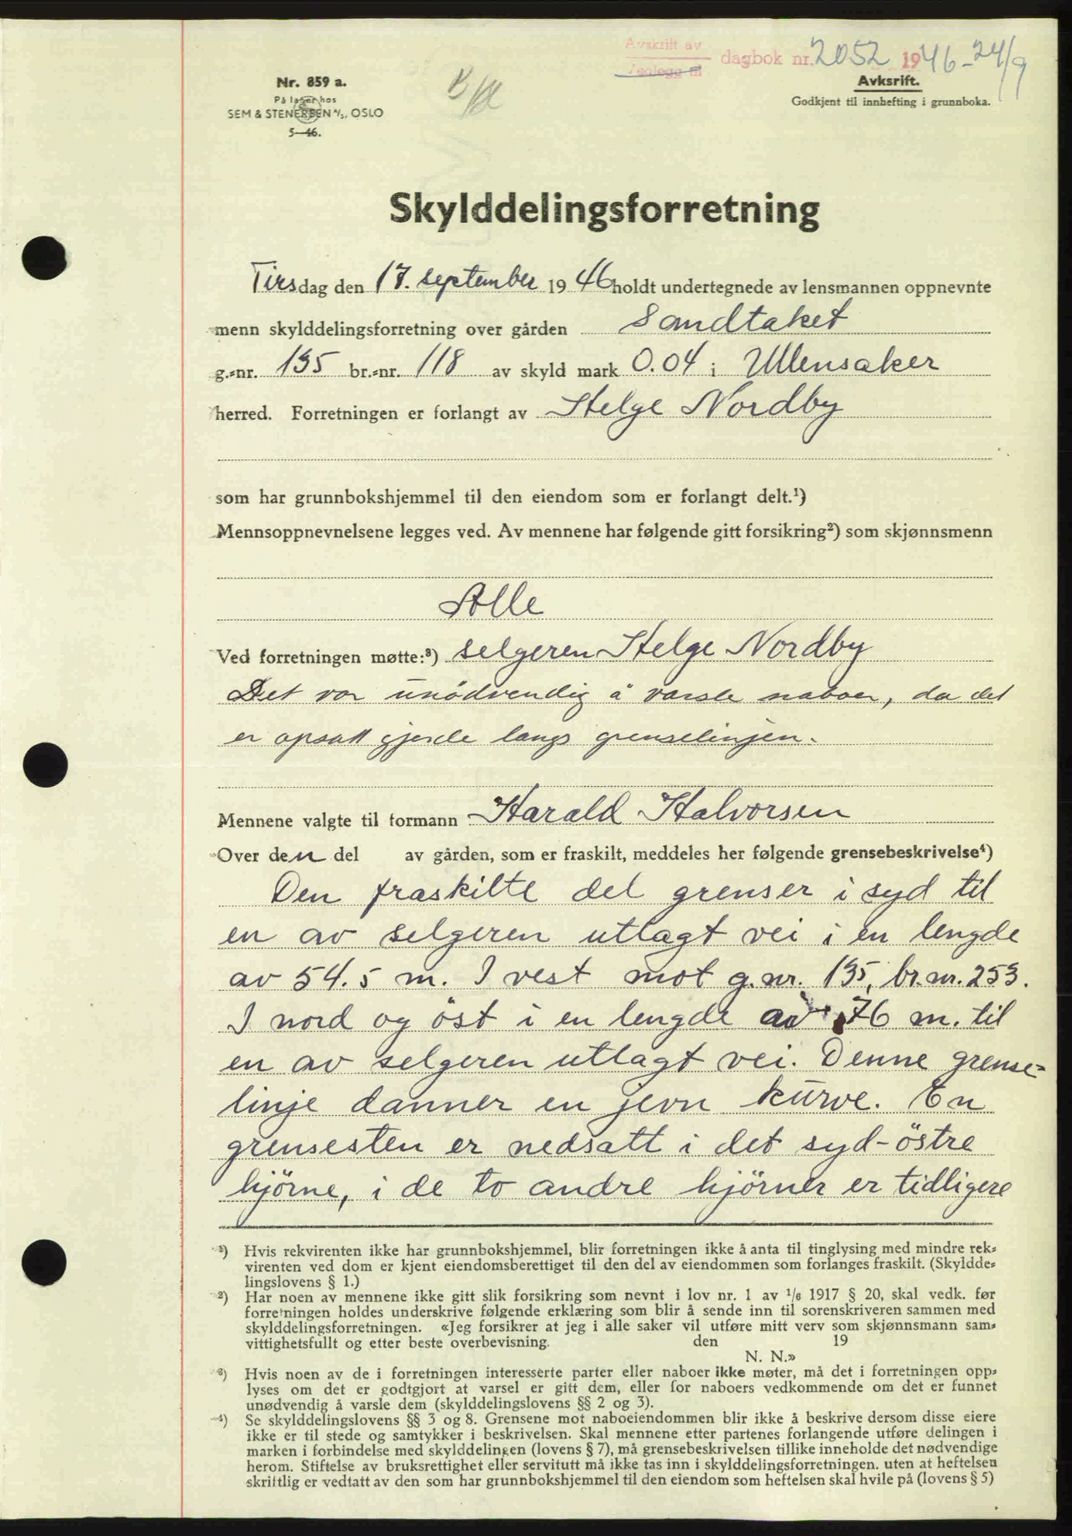 Avskrift av dagbok nr. 2052 1946 - 24/9
Nr. 859 a.
På lager hos
SEM & STENERSEN A/S, OSLO
5—46.
Avskrift.
Godkjent til innhefting i grunnboka.
Skylddelingsforretning
Tirsdag den 17. september 1946 holdt undertegnede av lensmannen oppnevnte
menn skylddelingsforretning over gården Sandtaket
g.-nr. 135 br.-nr. 118 av skyld mark 0.04 i Ullensaker
herred. Forretningen er forlangt av Helge Nordby
som har grunnbokshjemmel til den eiendom som er forlangt delt.¹)
Mennsoppnevnelsene legges ved. Av mennene har følgende gitt forsikring²) som skjønnsmenn
Alle
Ved forretningen møtte:³) selgeren Helge Nordby
Det var unödvendig å varsle naboer, da det
er opsatt gjerde langs grenselinjen.
Mennene valgte til formann Harald Halvorsen
Over den del av gården, som er fraskilt, meddeles her følgende grensebeskrivelse⁴)
Den fraskilte del grenser i syd til
en av selgeren utlagt vei i en lengde
av 54.5 m. I vest mot g.nr. 135, br.nr. 253.
I nord og öst i en lengde av 76 m. til
en av selgeren utlagt vei. Denne grense-
linje danner en jevn kurve. En
grensesten er nedsatt i det syd-östre
hjörne, i de to andre hjörner er tidligere
¹) Hvis rekvirenten ikke har grunnbokshjemmel, blir forretningen ikke å anta til tinglysing med mindre rek-
virenten ved dom er kjent eiendomsberettiget til den del av eiendommen som forlanges fraskilt. (Skyldde-
lingslovens § 1.)
²) Har noen av mennene ikke gitt slik forsikring som nevnt i lov nr. 1 av 1/6 1917 § 20, skal vedk. før
forretningen holdes underskrive følgende erklæring som blir å sende inn til sorenskriveren sammen med
skylddelingsforretningen. «Jeg forsikrer at jeg i alle saker vil utføre mitt verv som skjønnsmann sam-
vittighetsfullt og etter beste overbevisning. den 19
N. N.»
³) Hvis noen av de i forretningen interesserte parter eller naboer ikke møter, må det i forretningen opp-
lyses om det er godtgjort at varsel er gitt dem, eller for naboers vedkommende om det er funnet
unødvendig å varsle dem (skylddelingslovens §§ 2 og 3).
⁴) Se skylddelingslovens §§ 3 og 8. Grensene mot naboeiendommen blir ikke å beskrive dersom disse eiere
ikke er til stede og samtykker i beskrivelsen. Skal mennene etter partenes forlangende utføre delingen i
marken i forbindelse med skylddelingen (lovens § 7), må grensebeskrivelsen tillike inneholde det nødvendige
herom. Stiftelse av bruksrettighet eller servitutt må ikke tas inn i skylddelingsforretningen. uten at heftelsen
skriftlig er vedtatt av den som har grunnbokshjemmel til den eiendom som heftelsen skal hvile på (lovens § 5)